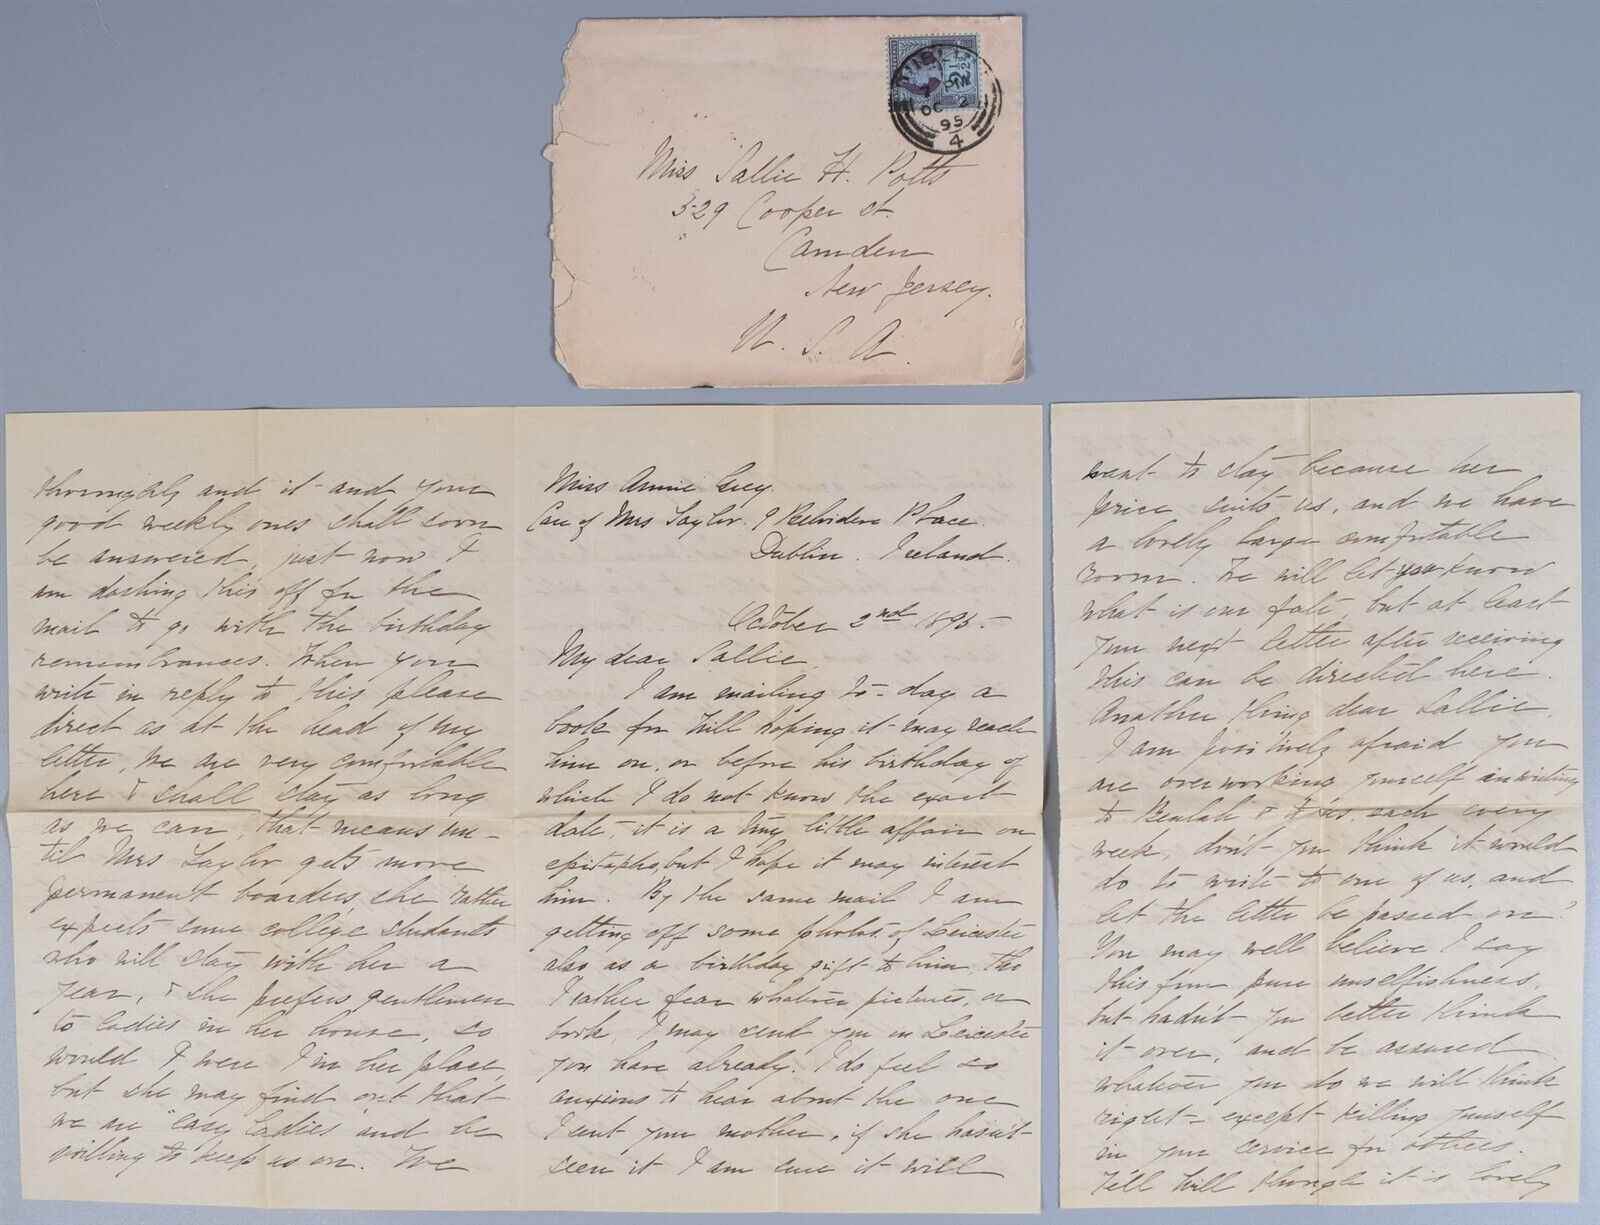 DUBLIN
7 PM
OC 2
95
4
Miss Sallie H. Potts
529 Cooper St.
Camden
New Jersey.
U. S. A.
thoroughly and it and your
good weekly ones shall soon
be answered, just now I
am dashing this off for the
mail to go with the birthday
remembrances. When you
write in reply to this please
direct as at the head of my
letter, We are very comfortable
here & shall stay as long
as we can, that means un-
til Mrs Taylor gets more
permanent boarders, she rather
expects some college students
who will stay with her a
year, & she prefers gentlemen
to ladies in her house, so
would I were I in her place,
but she may find out that
we are "easy ladies" and be
willing to keep us on. We
Miss Annie
Care of Mrs Taylor. 9 Belvidere Place.
Dublin. Ireland.
October 2nd 1895.
My dear Sallie,
I am mailing to-day a
book for Will hoping it may reach
him on, or before his birthday of
which I do not know the exact
date, it is a tiny little affair on
epitaphs, but I hope it may interest
him. By the same mail I am
getting off some photos of Leicester
also as a birthday gift to him, tho
I rather fear whatever pictures, or
book, I may send you on Leicester
you have already. I do feel so
anxious to hear about the one
I sent your mother, if she hasn't
seen it I am sure it will
want to stay because her
price suits us, and we have
a lovely large comfortable
room. We will let you know
what is our fate, but at least
your next letter after receiving
this can be directed here.
Another thing dear Sallie,
I am positively afraid you
are overworking yourself in writing
to Beulah & to us, each every
week, don't you think it would
do to write to one of us, and
let the letter be passed on?
You may well believe I say
this from pure unselfishness,
but hadn't you better think
it over, and be assured
whatever you do we will think
right - except killing yourself
in your service for others.
Tell Will though it is lovely